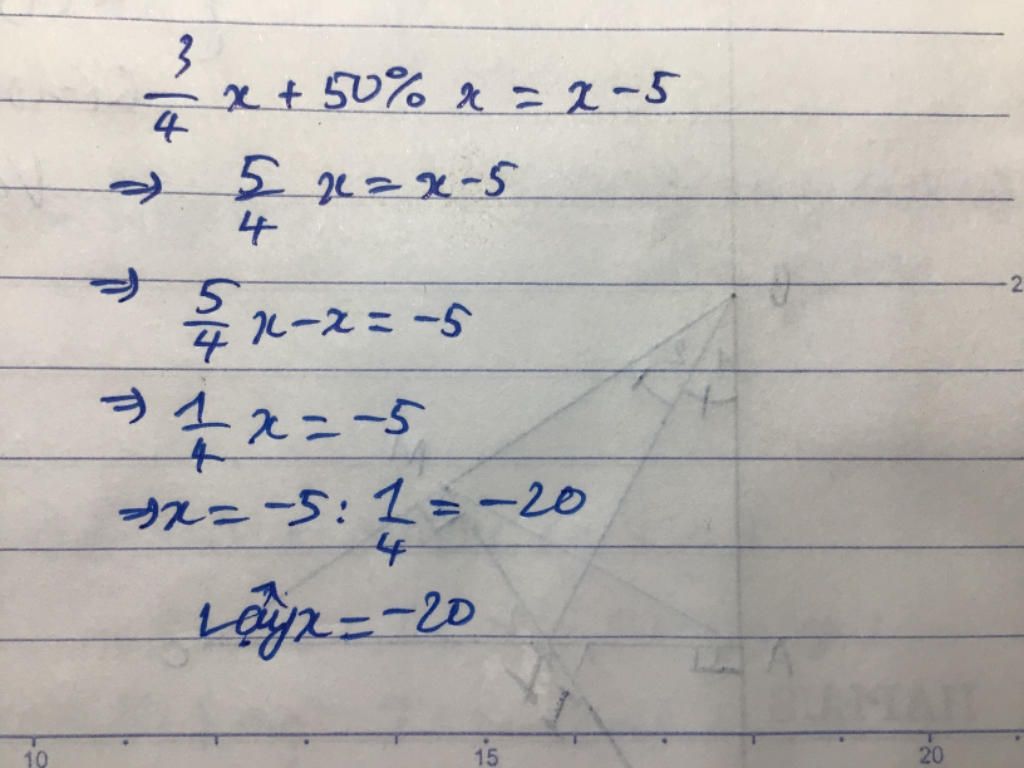 3/4 x + 50% x = x - 5
⇒ 5/4 x = x - 5
⇒ 5/4 x - x = -5
⇒ 1/4 x = -5
⇒ x = -5 : 1/4 = -20
Vậy x = -20
2
10 15 20